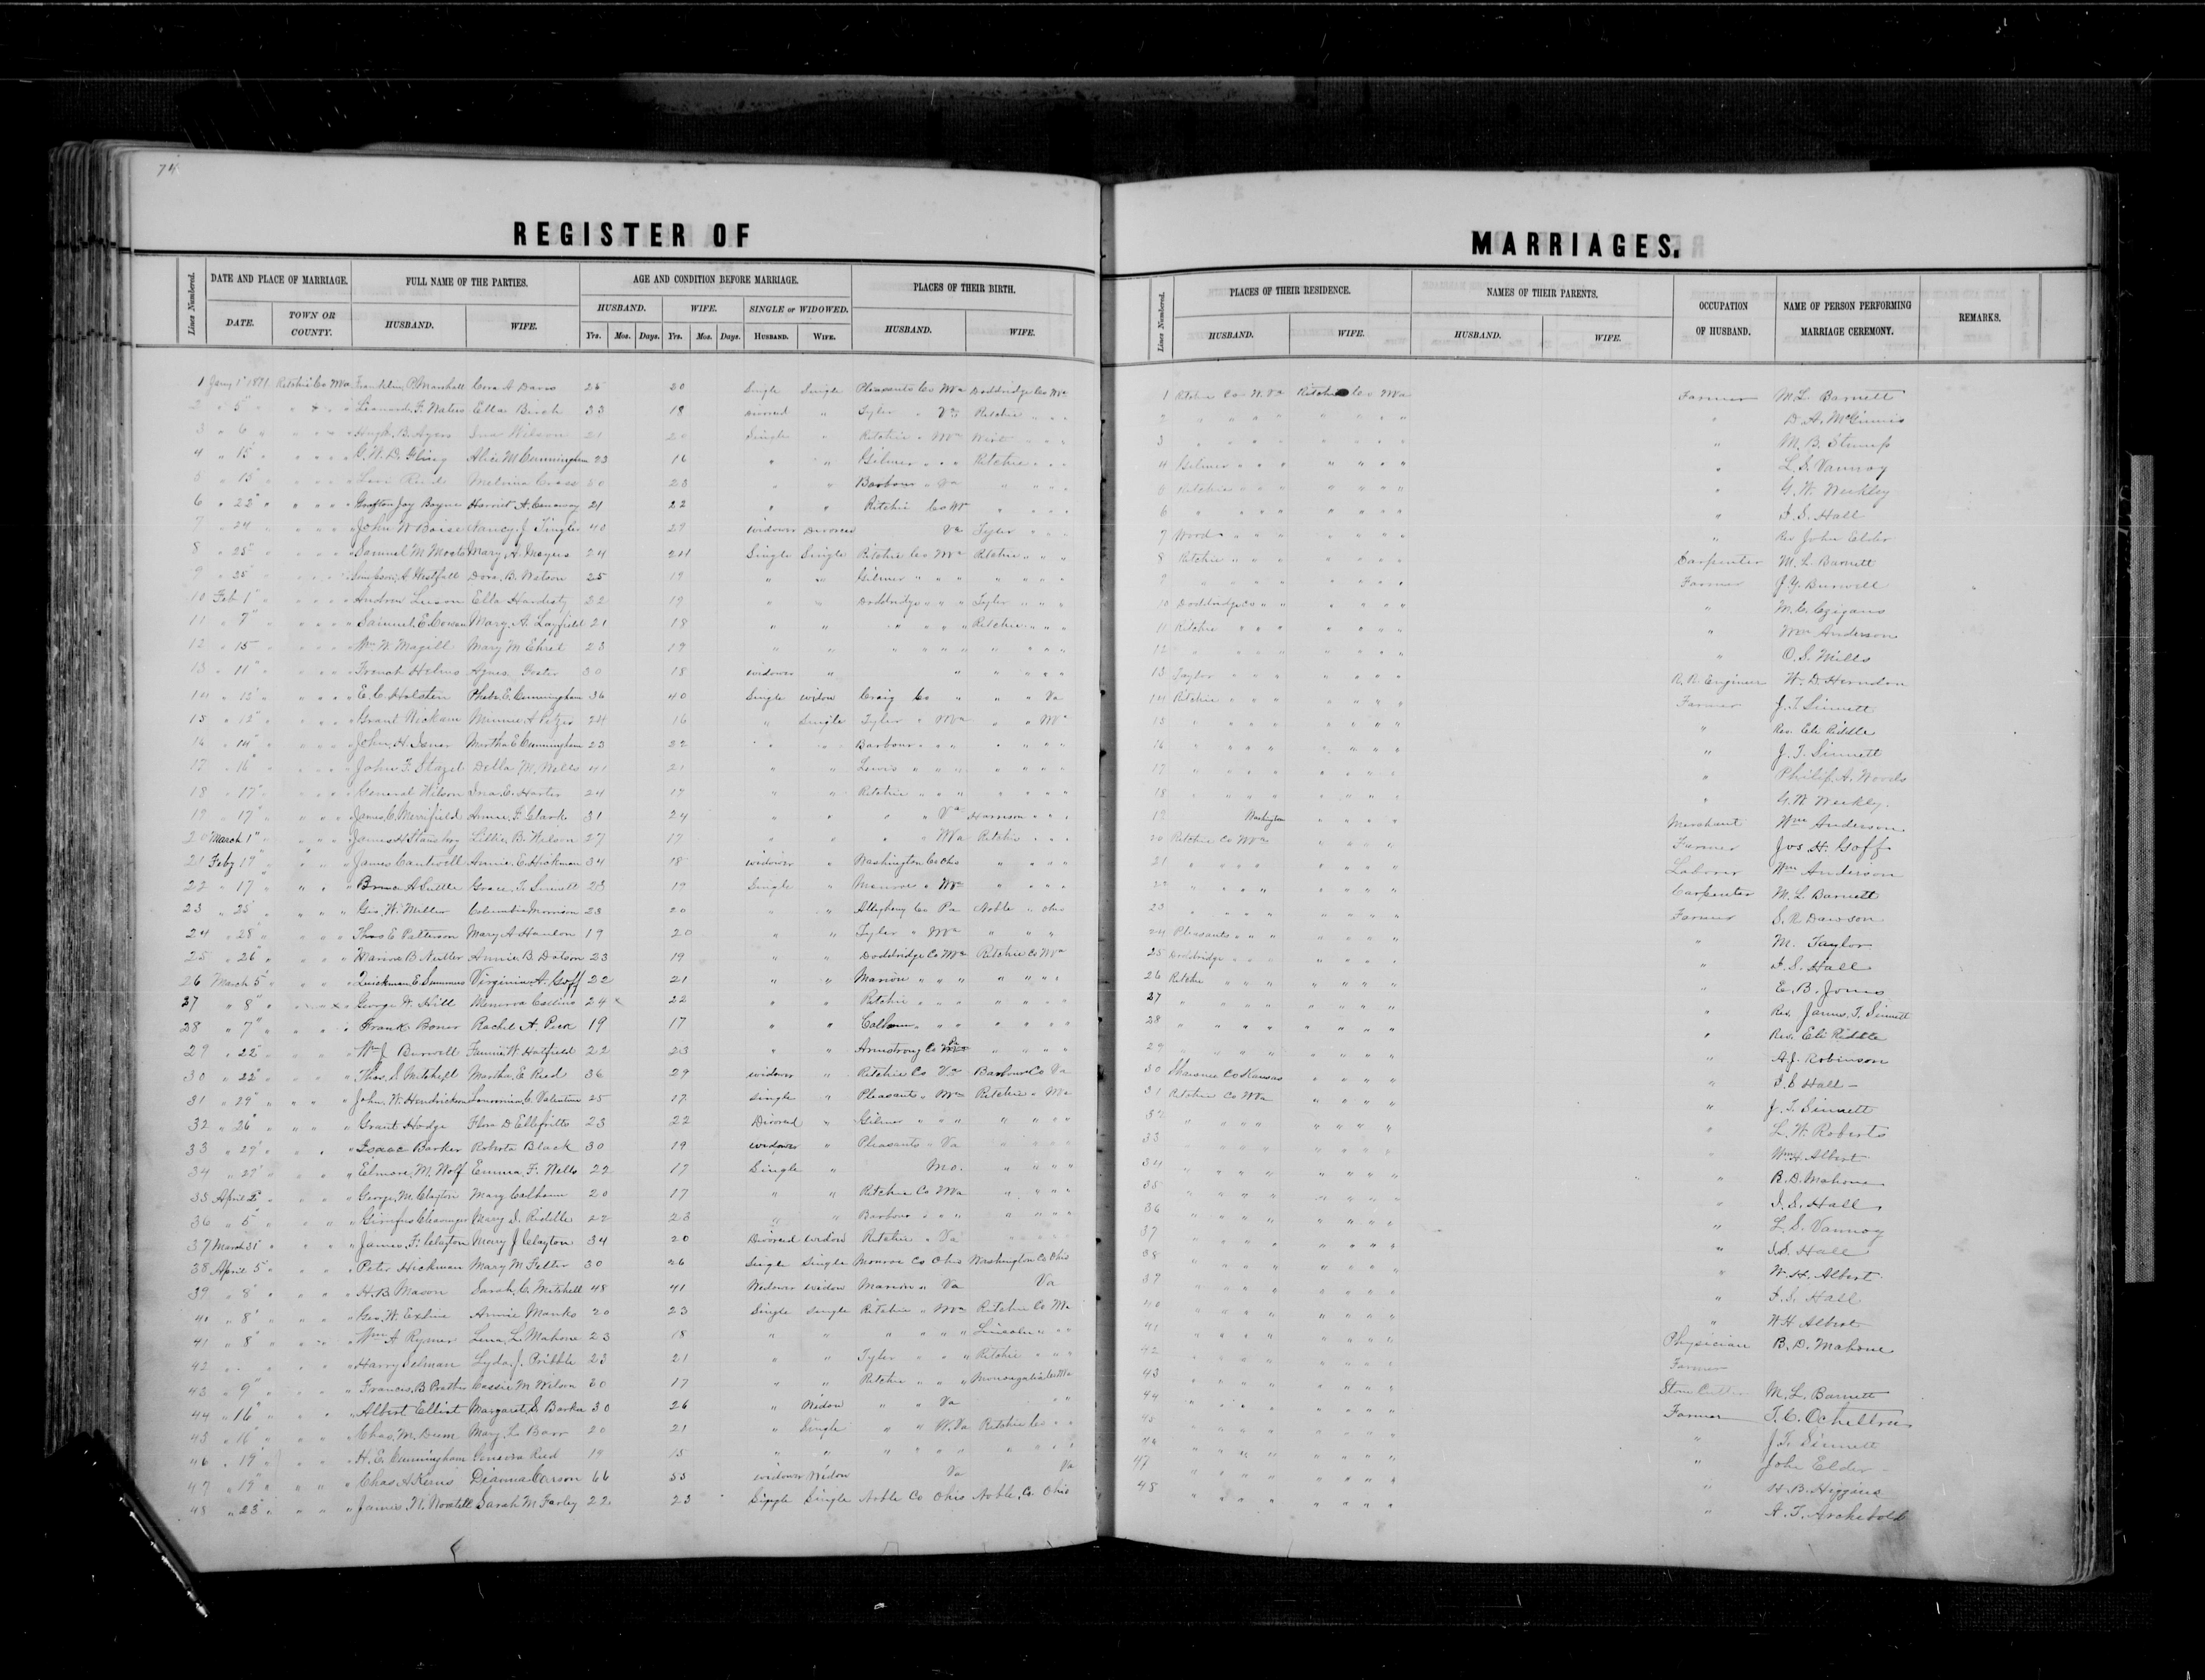 74
REGISTER OF
MARRIAGES.
Lines Numbered. DATE AND PLACE OF MARRIAGE. FULL NAME OF THE PARTIES. AGE AND CONDITION BEFORE MARRIAGE. PLACES OF THEIR BIRTH.
DATE. TOWN OR COUNTY. HUSBAND. WIFE. HUSBAND. WIFE. SINGLE or WIDOWED. HUSBAND. WIFE.
Yrs. Mos. Days. Yrs. Mos. Days. HUSBAND. WIFE.
1 Ritchie Co Wva Franklin P. Marshall Cora A Davis 25 20 Single Single Pleasants Co Wva Doddridge Co Wva
2 " 5" Leonard F. Waters Ella Birch 33 18 Divorced " Tyler " Va Ritchie " " "
3 " 6 Hugh B. Ayers Ina Wilson 21 20 Single " Ritchie " Wva Wirt " " "
4 " 15 Alice M Cunningham 23 16 " " Gilmer " " " Ritchie " " "
5 " 15 Levi Reed Melvina Cross 23 " " Barbour " Va " " " "
6 " 22" Grafton Jay Bayne Harriet A. 21 22 " " Ritchie Co Wv " " " "
7 " 24 John W Boise Nancy J. Tingler 40 27 widower Divorced Va Tyler " " "
8 " 25" Samuel M Moats Mary A. Mayers 24 24 Single Single Ritchie Co Wva Ritchie " " "
9 " 25 Westfall Dora B. Watson 25 19 " " Gilmer " " " " " " "
10 Feb 1" Andrew Ella Hardesty 22 19 " " Doddridge " " " Tyler " " "
11 " 7" Samuel E. Cowan Mary A. Layfield 21 18 " " " " " " Ritchie " " "
12 " 15 Wm W. Magill Mary M Ehret 23 19 " " " " " " " " " "
13 " 11" Helms Agnes Foster 30 18 widower " " "
14 " 12" E. C. Holsten Phebe E. Cunningham 36 40 Single widow Craig Co " " " Va
15 " 12" Grant Wickam Minnie A 24 16 " Single Tyler " Wva " " Wv
16 " 14" John H. Isner Martha E Cunningham 23 22 " " Barbour " " " " " " "
17 " 16" John F. Stazel Della M. Wells 41 21 " " Lewis " " " " " " "
18 " 17" General Wilson Ina C. Harter 24 19 " " Ritchie " " " " " " "
19 " 17" James C. Merrifield Annie F. Clark 31 24 " " " " Va Harrison " " "
20 March 1" James H Stansbery Lillie B. Wilson 27 17 " " " " Wva Ritchie " " "
21 Feby 17" James Cantwell Annie E. Hickman 34 18 widower " Washington Co Ohio " " " "
22 " 17" Grace T. Sinnett 23 19 Single " Monroe " Wva " " " "
23 " 25 Geo. W. Miller Columbia Morrison 23 20 " " Allegheny Co Pa Noble " Ohio
24 " 28" Thos E Patterson Mary A Hanlon 19 20 " " Tyler " Wva " " "
25 " 26" B Nutter Annie B. Dotson 23 19 " " Doddridge Co Wva Ritchie Co Wva
26 March 5" Quickman E. Summers Virginia A. Goff 22 21 " " Marion " " " " " " "
27 " 8" George W. Hill Menerva Collins 24 22 " " Ritchie " " " " " " "
28 " 7" Frank Boner Rachel A. Peck 19 17 " " Calhoun " " " " " " "
29 " 22" Wm J Burwell Fannie W Hatfield 22 23 " " Armstrong Co Pa " " " "
30 " 22" Thos. S. Mitchell Martha E Reed 36 29 widower " Ritchie Co Va Barbour Co Va
31 " 29" John W. Hendrickson C. Valentine 25 17 single " Pleasants " Wva Ritchie " Wva
32 " 26" Grant Hodge Flora D Ellifritts 23 22 Divorced " Gilmer " " " " " " "
33 " 29" Isaac Barker Roberta Black 30 19 widower " Pleasants " Va " " " "
34 " 29" Elmore M. Wolf Emma F. Wells 22 17 Single " Mo. " " " "
35 April 2" George M. Clayton Mary Calhoun 20 17 " " Ritchie Co Wva " " " "
36 " 5" Cleavenger Mary S. Riddle 22 23 " " Barbour " " " " " " "
37 March 31" James F. Clayton Mary J Clayton 34 20 Divorced widow Ritchie " Va
38 April 5" Peter Hickman Mary M Fetter 30 26 Single Single Monroe Co Ohio Washington Co Ohio
39 " 8" H. B Mason Sarah C. Mitchell 48 41 Widower widow Marion " Va Va
40 " 8" Geo. W. Exline Annie Manks 20 23 Single single Ritchie " Wva Ritchie Co Wva
41 " 8" Wm A Rymer Lena L. Mahone 23 18 " " " " " " Lincoln " " "
42 " Harry Selman Lyda J. Pribble 23 21 " " Tyler " " " Ritchie " " "
43 " 9" Francis B Prather Cassie M Wilson 30 17 " " Ritchie " " " Monongalia Co Wva
44 " 16" Albert Elliot Margaret S. Barker 30 26 " Widow " " Va " "
45 " 16" Chas. M. Deem Mary L. Barr 20 21 " Single " " W.Va Ritchie Co " "
46 " 19" H. E. Cunningham Genevra Reed 19 15 " " " " " " " " " "
47 " 19" Chas. A Kerns Dianna Carson 66 55 widower Widow Va Va
48 " 23" James H. Sarah M Farley 22 23 Single Single Noble Co Ohio Noble Co. Ohio
Lines Numbered. PLACES OF THEIR RESIDENCE. NAMES OF THEIR PARENTS. OCCUPATION OF HUSBAND. NAME OF PERSON PERFORMING MARRIAGE CEREMONY. REMARKS.
HUSBAND. WIFE. HUSBAND. WIFE.
1 Ritchie Co W. Va Ritchie Co Wva Farmer M. L. Barnett
2 " " " " " " " " " D. A. McGinnis
3 " " " " " " " " " M. B. Stump
4 Gilmer " " " " " " " " L. S. Vannoy
5 Ritchie " " " " " " " " G. W. Weekley
6 " " " " " " " " " I. S. Hall
7 Wood " " " " " " " " Rev John Elder
8 Ritchie " " " " " " " Carpenter M. L. Barnett
9 " " " " " " " " Farmer J. Y. Burwell
10 Doddridge Co " " " " " " " M. C.
11 Ritchie " " " " " " " " Wm Anderson
12 " " " " " " " " " O. S. Mills
13 Taylor " " " " " " " R. R Engineer W. D. Herndon
14 Ritchie " " " " " " " Farmer J. T. Sinnett
15 " " " " " " " " " Rev. Eli Riddle
16 " " " " " " " " " J. T. Sinnett
17 " " " " " " " " " Philip A. Woods
18 " " " " " " " " " G. W Weekley
19 Washington " " " " Merchant Wm Anderson
20 Ritchie Co Wva " " " " Farmer Jos. H. Goff
21 " " " " " " " " Laborer Wm Anderson
22 " " " " " " " " Carpenter M. L Barnett
23 " " " " " " " " Farmer S. R Dawson
24 Pleasants " " " " " " " " M. Taylor
25 Doddridge " " " " " " " " I. S. Hall
26 Ritchie " " " " " " " " E. B. Jones
27 " " " " " " " " " Rev. James T. Sinnett
28 " " " " " " " " " Rev. Eli Riddle
29 " " " " " " " " " A. J. Robinson
30 Shawnee Co Kansas " " " " " I. S Hall
31 Ritchie Co Wva " " " " " J. T. Sinnett
32 " " " " " " " " " L. W. Roberts
33 " Wm H. Albert
34 " " " " " " " " " B. D. Mahone
35 " " " " " " " " " I. S. Hall
36 " " " " " " " " " L. S. Vannoy
37 " " " " " " " " " I. S. Hall
38 " " " " " " " " " W. H. Albert
39 " " " " " " " " " I. S. Hall
40 " " " " " " " " " W H Albert
41 " " " " " " " " Physician B. D. Mahone
42 " " " " " " " " Farmer
43 " " " " " " " " Stone Cutter M. L. Barnett
44 " " " " " " " " Farmer T. C. Ocheltree
45 " " " " " " " " " J. T. Sinnett
46 " " " " " " " " " John Elder
47 " " " " " " " " " H. B. Higgins
48 " " " " " " " " " A. T. Archibold